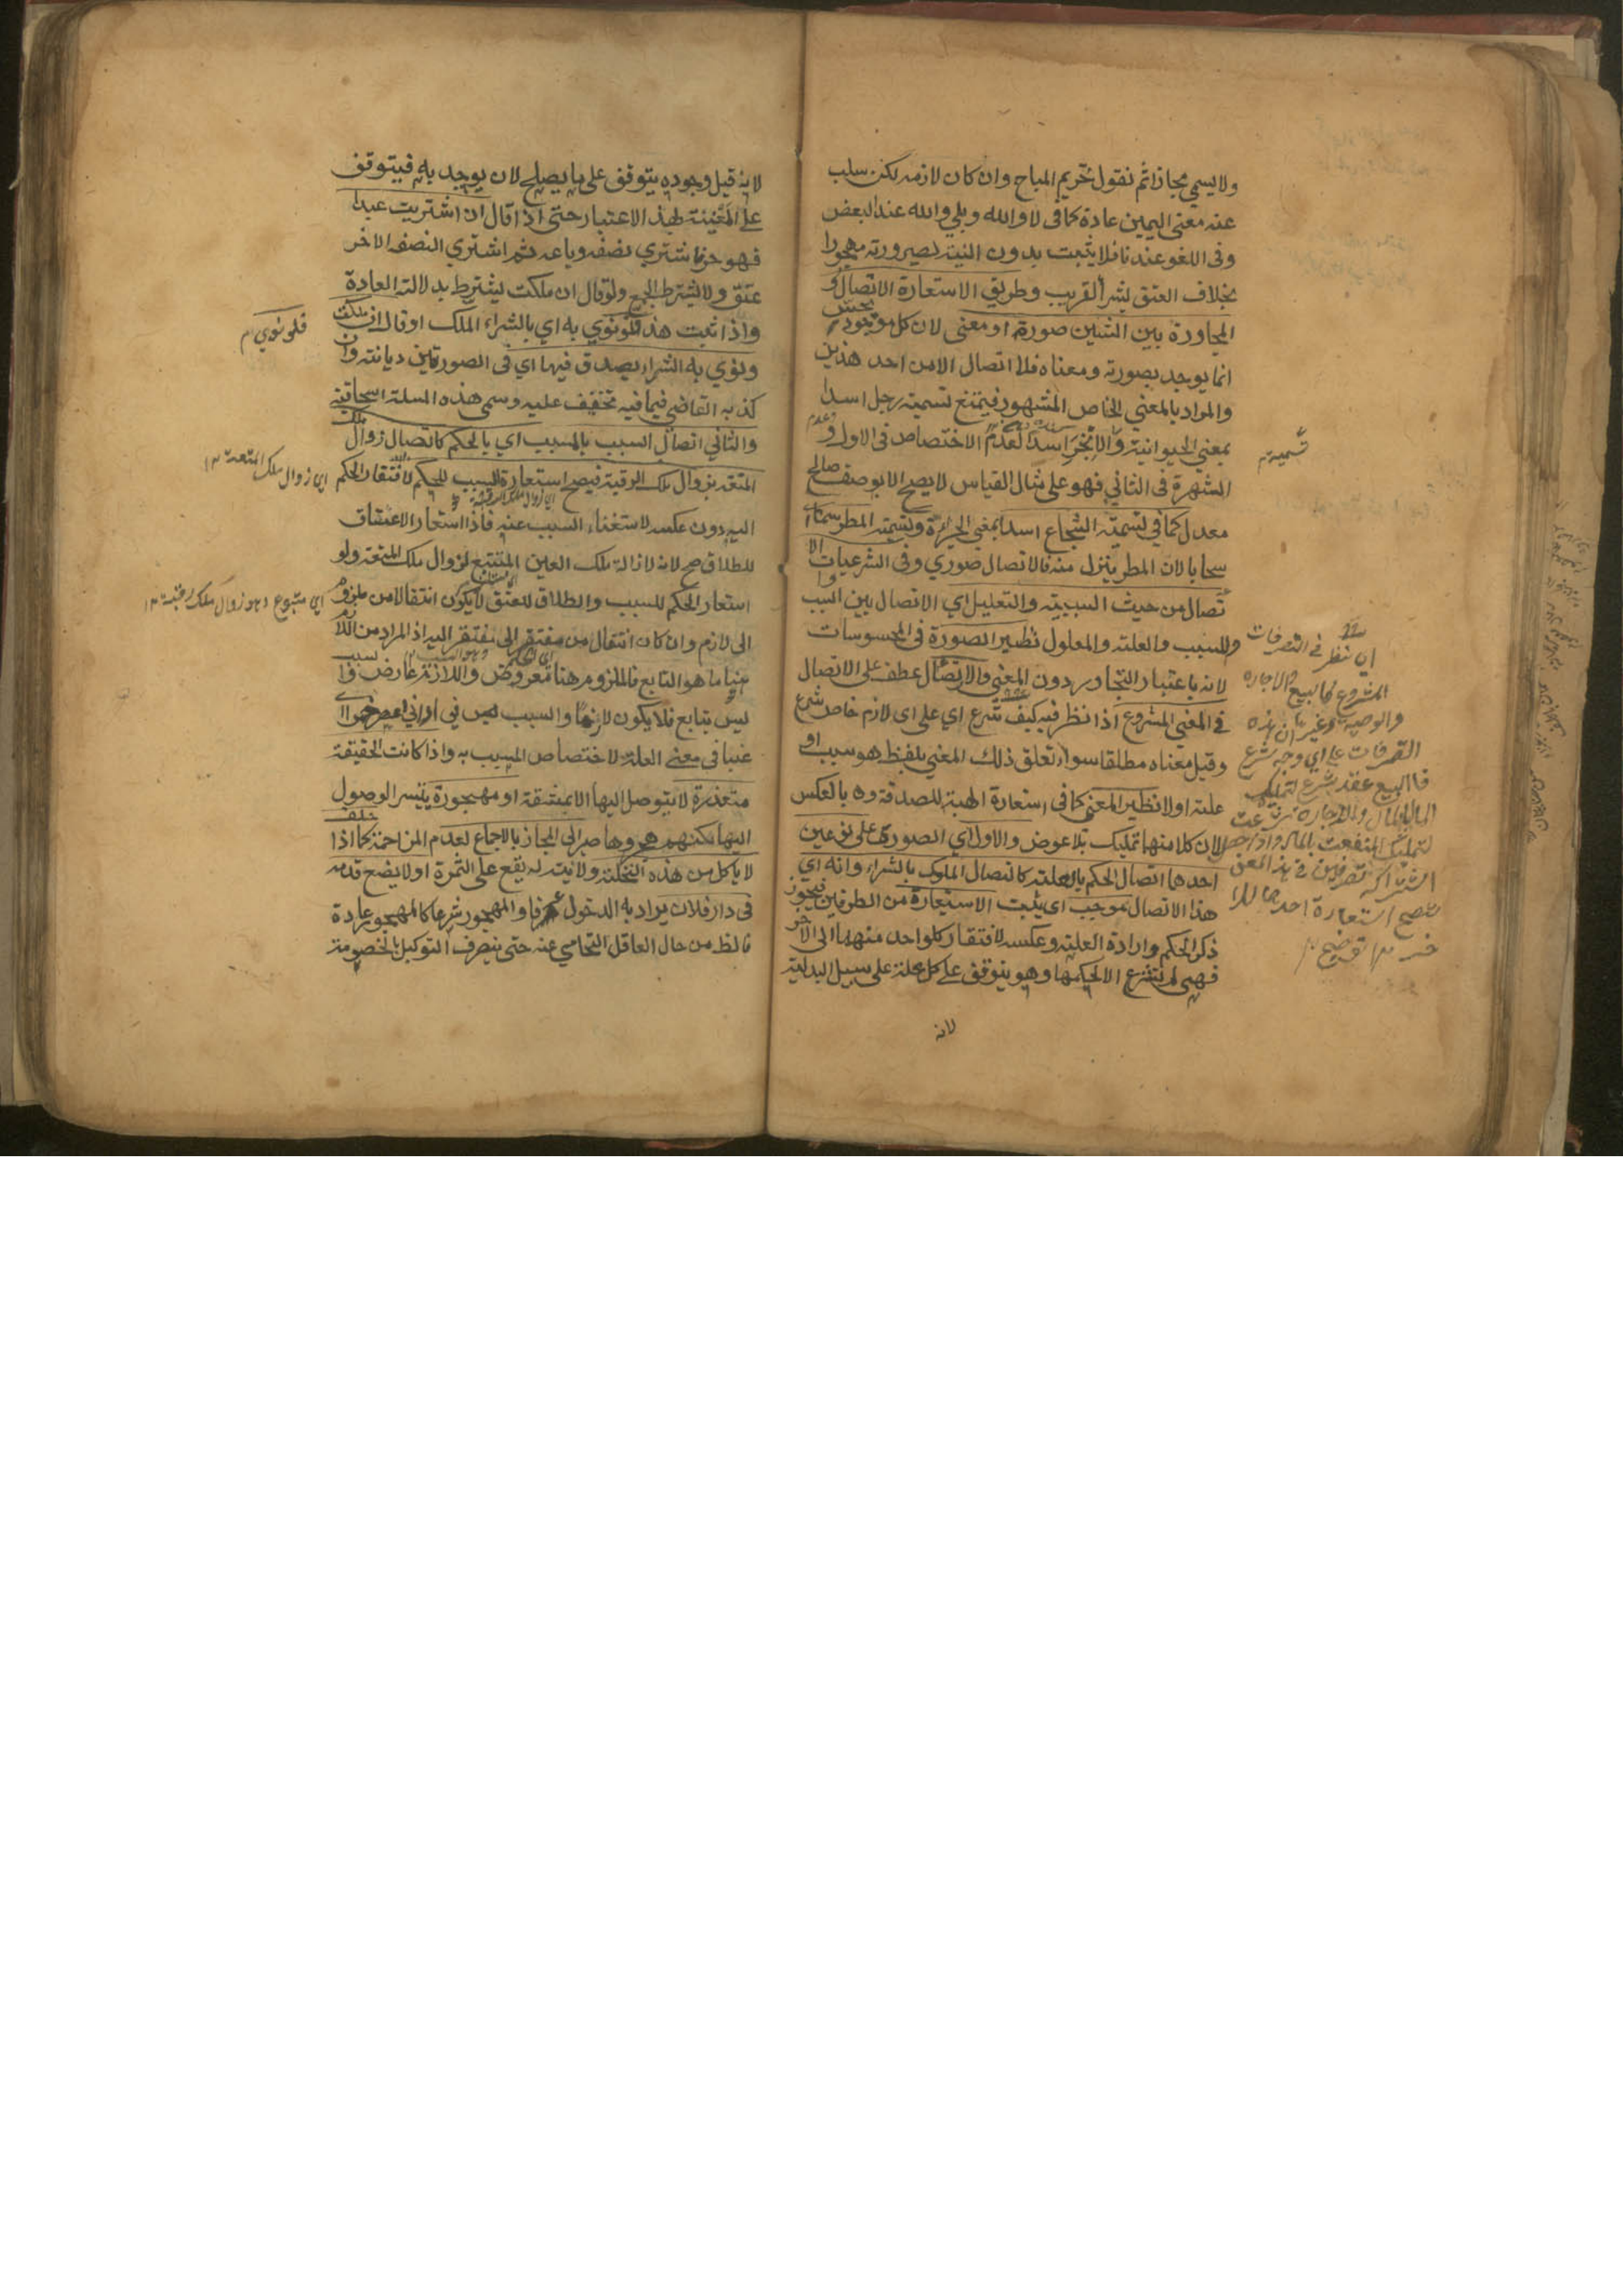 ولا يسمي مجازا ثم نقول تحريم المباح وان كان لازمه لكن سلب
عنه معنى اليمين عادة كما في لا والله وبلي والله عند البعض
وفى اللغو عندنا فلا يثبت بدون النية لصيرورته مهجورا
بخلاف العتق بشرأ القريب وطريق الاستعارة الاتصال و
المجاورة بين الشيئين صورة او معنى لان كل موجود
انما يوجد بصورته ومعناه فلا اتصال الا من احد هذين
والمراد بالمعنى الخاص المشهور فيمتنع تسمية رجل اسدا
بمعنى الحيوانية والابخر اسدا لعدم الاختصاص فى الاول و
الشهرة فى الثاني فهو على مثال القياس لا يصح الا بوصف صالح
معدل كما في تسمية الشجاع اسدا بمعنى الجرأة وتسمية المطر سماء
سحابا لان المطر ينزل منه فالاتصال صوري وفى الشرعيات الا
تصال من حيث السببية والتعليل اي الاتصال بين السبب
والمسبب والعلة والمعلول نظير الصورة فى المحسوسات
لانه باعتبار التجاور دون المعنى والاتصال عطف على الاتصال
في المعنى المشروع اذا نظر فيه كيف شرع اي على اى لازم خاص شرع
وقيل معناه مطلقا سواء تعلق ذلك المعنى بلفظ هو سبب او
علة اولا نظير المعنى كما فى استعارة الهبة للصدقة وبالعكس
لان كلا منهما تمليك بلا عوض والاول اي الصورة على نوعين
احدهما اتصال الحكم بالعلة كاتصال الملوك بالشراء وانه اي
هذا الاتصال بموجب اى يثبت الاستعارة من الطرفين فيجوز
ذكر الحكم وارادة العلة وعكسه لافتقار كلواحد منهما الى الآخر
فهى لم تشرع الا لحكمها وهو يتوقف على كل علة على سبيل البدلية
لانه
تسمية م
اي ينظر في التصرفات
المشروع كالبيع والاجارة
والوصية وغيرها ان هذه
التصرفات على اي وجه شرع
فالبيع عقد شرع لتمليك
المال بالمال والاجارة شرعت
لتمليك المنفعت بالمال
لانه قبل وجوده يتوقف على ما يصلح لان يوجد به فيتوقف
على المعينة لهذا الاعتبار حتى اذا قال ان اشتريت عبدا
فهو حر فاشتري نصفه وباعه ثم اشتري النصف الاخر
عتق ولا يشترط الجمع ولو قال ان ملكت يشترط بدلالة العادة
واذا ثبت هذا فلو نوي به اي بالشراء الملك او قال ان ملكت
ونوي به الشراء يصدق فيها اي فى الصورتين ديانة وان
كذبه القاضى فيما فيه تخفيف عليه وسمى هذه المسلة اسحاقية
والثاني اتصال السبب بالمسبب اي بالحكم كاتصال زوال ملك
المتعة بزوال ملك الرقبة فيصح استعارة السبب للحكم لافتقار الحكم
اليه دون عكسه لاستغناء السبب عنه فاذا استعار الاعتاق
للطلاق صح لانه لازالة ملك العين المستتبع لزوال ملك المتعة ولو
استعار الحكم للسبب والطلاق للعتق لا يكون انتقالا من ملزوم
الى لازم وان كان انتقال من مفتقر الى مفتقر اليه اذ المراد من اللازم
ههنا ما هو التابع فالملزوم ههنا معروض واللازم عارض والسبب
ليس بتابع فلا يكون لازما والسبب ليس في اراني اعصر خمرا اى
عنبا فى معنى العلة لاختصاص المسبب به واذا كانت الحقيقة
متعذرة لا يتوصل اليها الا بمشقة او مهجورة يتيسر الوصول
اليها لكنهم هجروها صير الى المجاز بالاجماع لعدم المزاحمة كما اذا حلف
لا ياكل من هذه النخلة ولا نية له يقع على الثمرة او لا يضع قدمه
فى دار فلان يراد به الدخول عرفا والمهجور شرعا كالمهجور عادة
فالظ من حال العاقل التحامي عنه حتى ينصرف التوكيل بالخصومة
فلو نوي م
اي زوال ملك المتعة ١٢
اي متبوع وهو زوال ملك رقبة ١٢